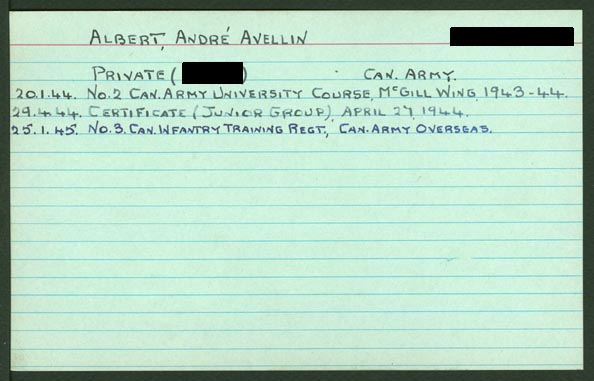 ALBERT, ANDRÉ AVELLIN
PRIVATE ( ) CAN. ARMY.
20.1.44. NO.2 CAN. ARMY UNIVERSITY COURSE, MCGILL WING, 1943-44.
29.4.44. CERTIFICATE (JUNIOR GROUP) APRIL 27, 1944.
25.1.45. NO.3. CAN. INFANTRY TRAINING REGT., CAN. ARMY OVERSEAS.